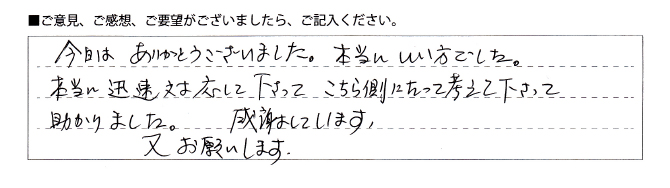 ■ご意見、ご感想、ご要望がございましたら、ご記入ください。
今日は ありがとうございました。 本当に いい方でした。
本当に 迅速文対応して下さって こちら側にたって考えて下さって
助かりました。 感謝してします,
又 お願いします.